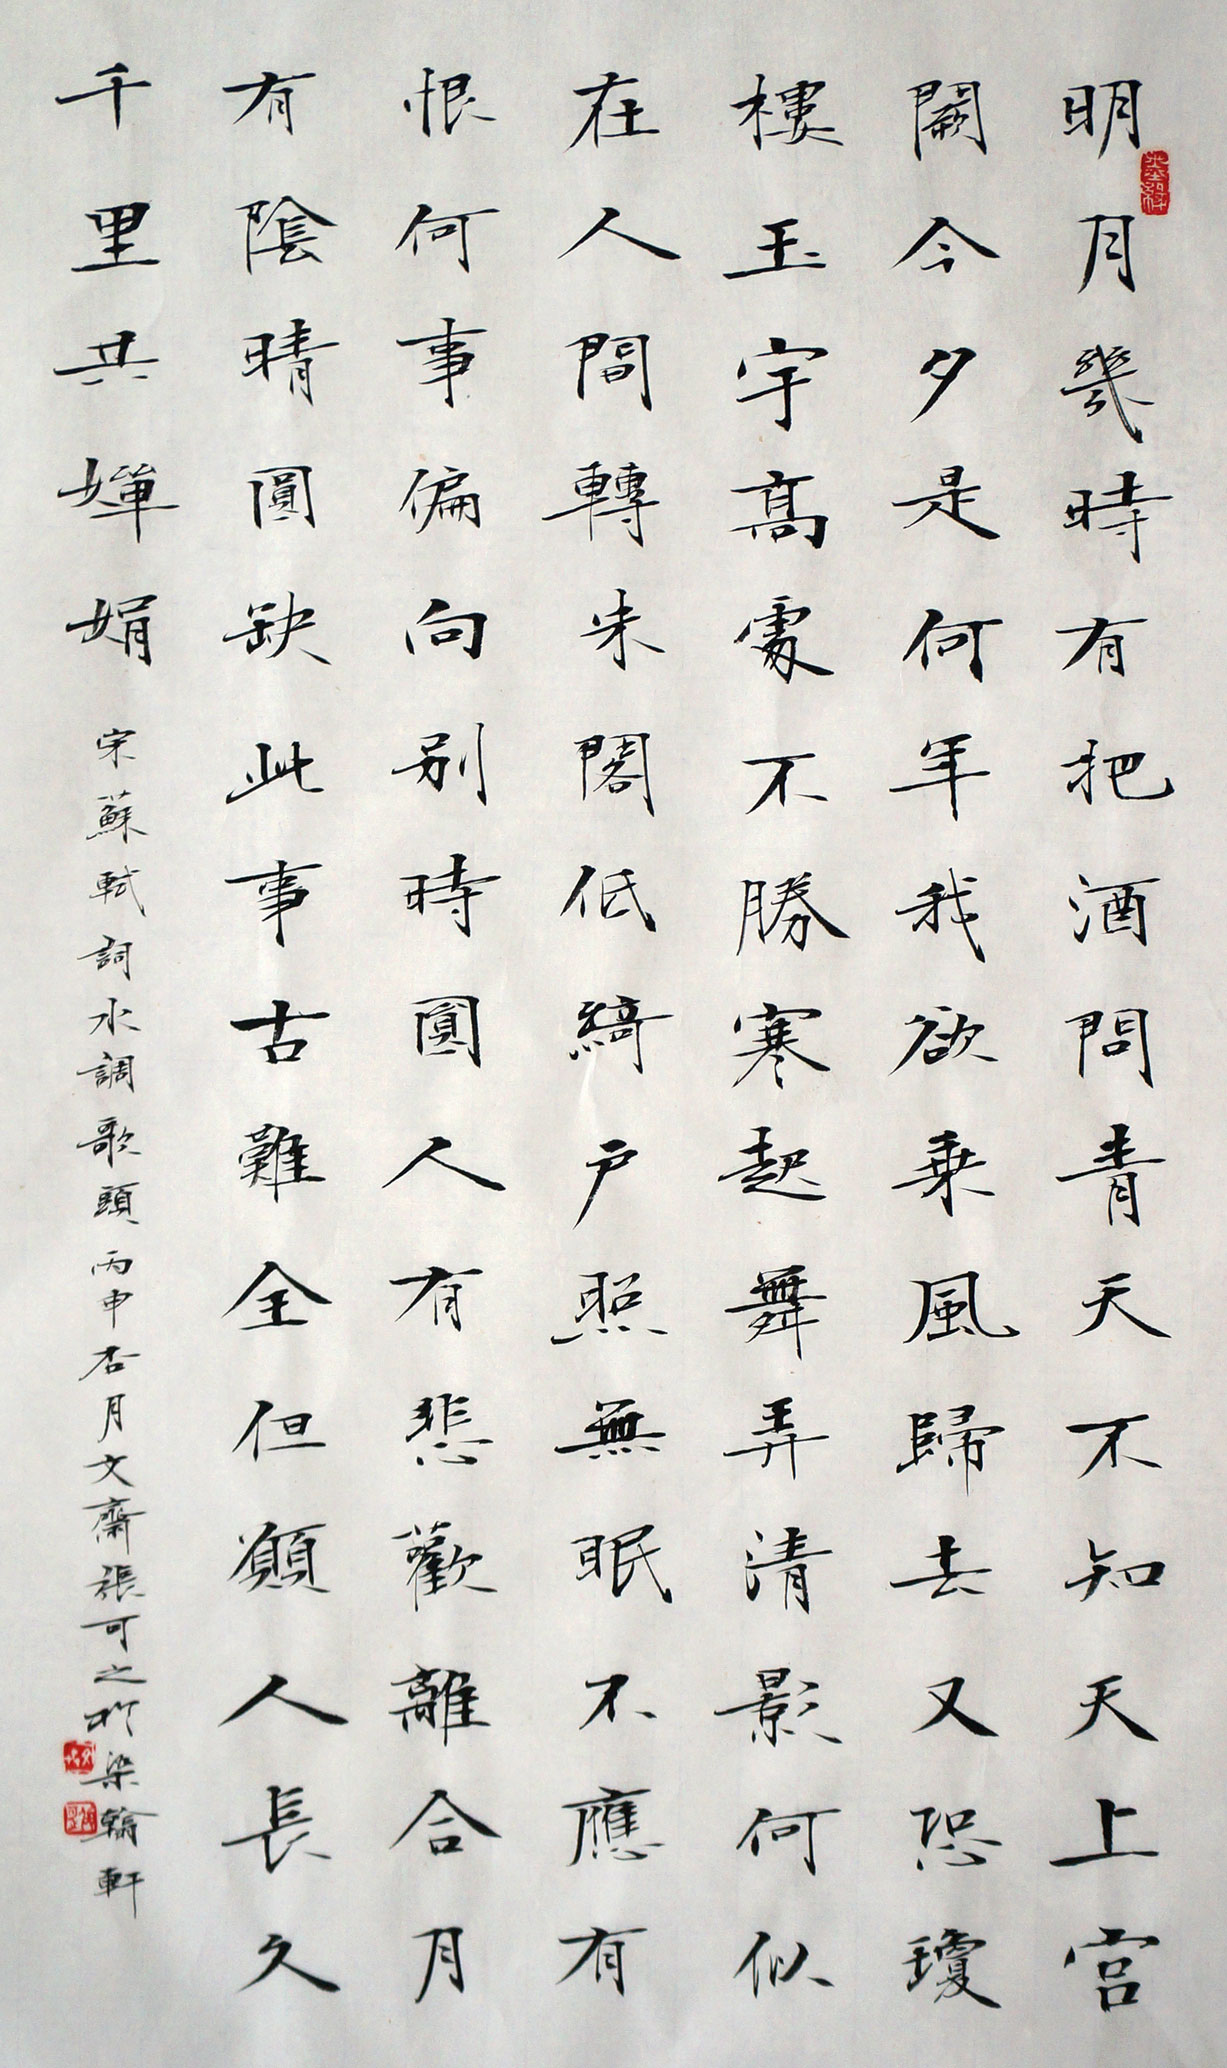 明月幾時有把酒問青天不知天上宫
闕今夕是何年我欲乗風歸去又恐瓊
樓玉宇髙處不勝寒起舞弄清影何似
在人間轉朱閣低綺户照無眠不應有
恨何事偏向别時圓人有悲歡離合月
有陰晴圓缺此事古難全但願人長久
千里共嬋娟
宋蘇軾詞水調歌頭丙申杏月文齋張可之於染翰軒